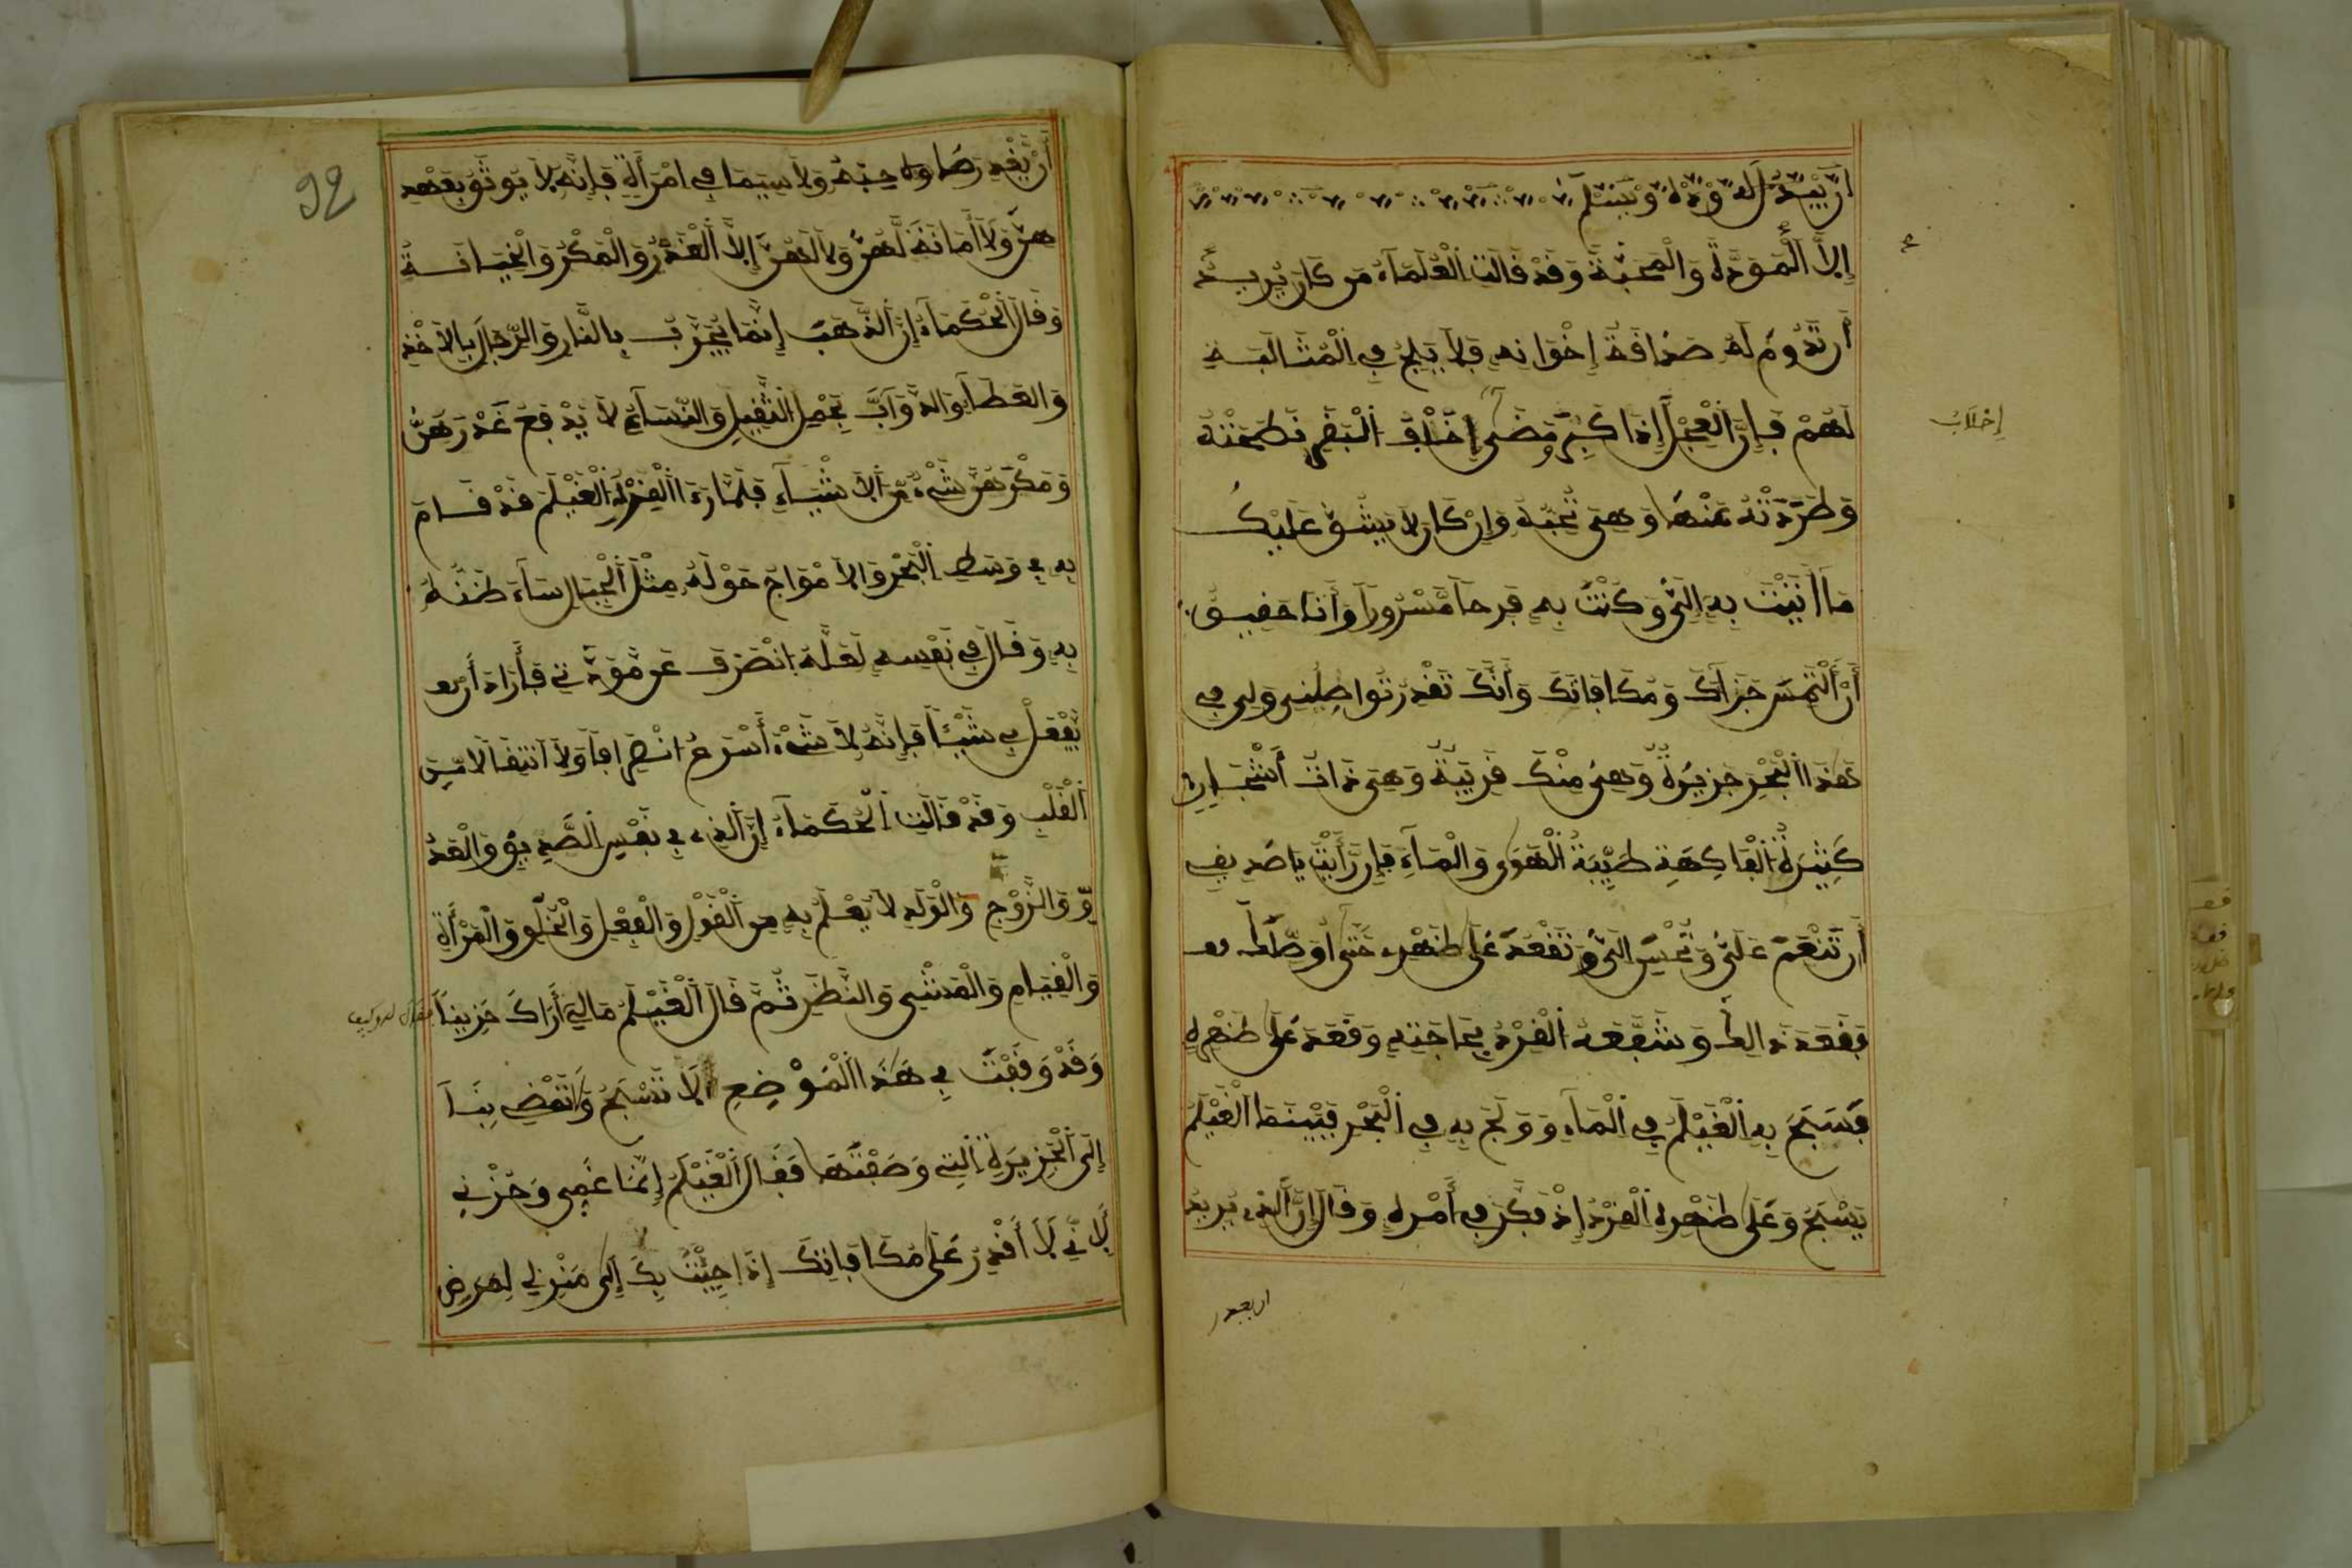 أن يبدل له وده ويسلم
إلا المودة والمحبة وقد قالت العلماء من كان يريد
أن تدوم له صداقة إخوانه فلا يلج في المثالبة
لهم فإن العجل إذا كبر ومضى إخلاف البقر نطحته
إخلاب
وطردته عنها وهي تحبه وإن كان لا يشق عليك
ما أتيت به إلي وكنت به فرحا مسرورا وأنا حقيق
أن ألتمس جزاك ومكافاتك وأنك تقدر تواصلني ولي في
هذا البحر جزيرة وهي منك قريبة وهي ذات أشجار
كثيرة الفاكهة طيبة الهوى والماء فإن رأيت يا صديقي
أن تنعم علي وتحسن إلي وتقعد على ظهري حتى أوصلك
فقعد ذالك وشفعه القرد بحاجته وقعد على ظهره
فسبح به الغيلم في الماء وولج به في البحر فبينما الغيلم
يسبح وعلى ظهره القرد إذ فكر في أمره وقال إن الذي يريد
92
أن يغدر صاحبه ولا سيما في امرأة فإنه لا يوثق بعهد
هن ولا أمانة لهن ولا لهن إلا الغدر والمكر والخيانة
وقال الحكماء إن الذهب إنما يجرب بالنار والرجال بالأخذ
والعطا والدواب بحمل الثقيل والنساء لا يدفع غدرهن
ومكرهن شيء من الأشياء فلما رءا القرد الغيلم قد قام
به في وسط البحر والأمواج حوله مثل الجبال ساء ظنه
به وقال في نفسه لعله انصرف عن مودتي فأراد أن
يفعل بي شيئا فإنه لا شيء أسرع انصرافا ولا انتقالا من
القلب وقد قالت الحكماء إن الذي في نفس الصديق والعد
و والزوج والولد لا يعلم به من القول والفعل والخلو والمرأة
والقيام والمشي والنظر ثم قال الغيلم مالي أراك حزينا
وقد وقفت في هذا الموضع ألا تسبح وتقض بنا
إلى الجزيرة التي وصفتها فقال الغيلم إنما غمي وحزني
لأني لا أقدر على مكافاتك إذا جئت بك إلى منزلي لمرض